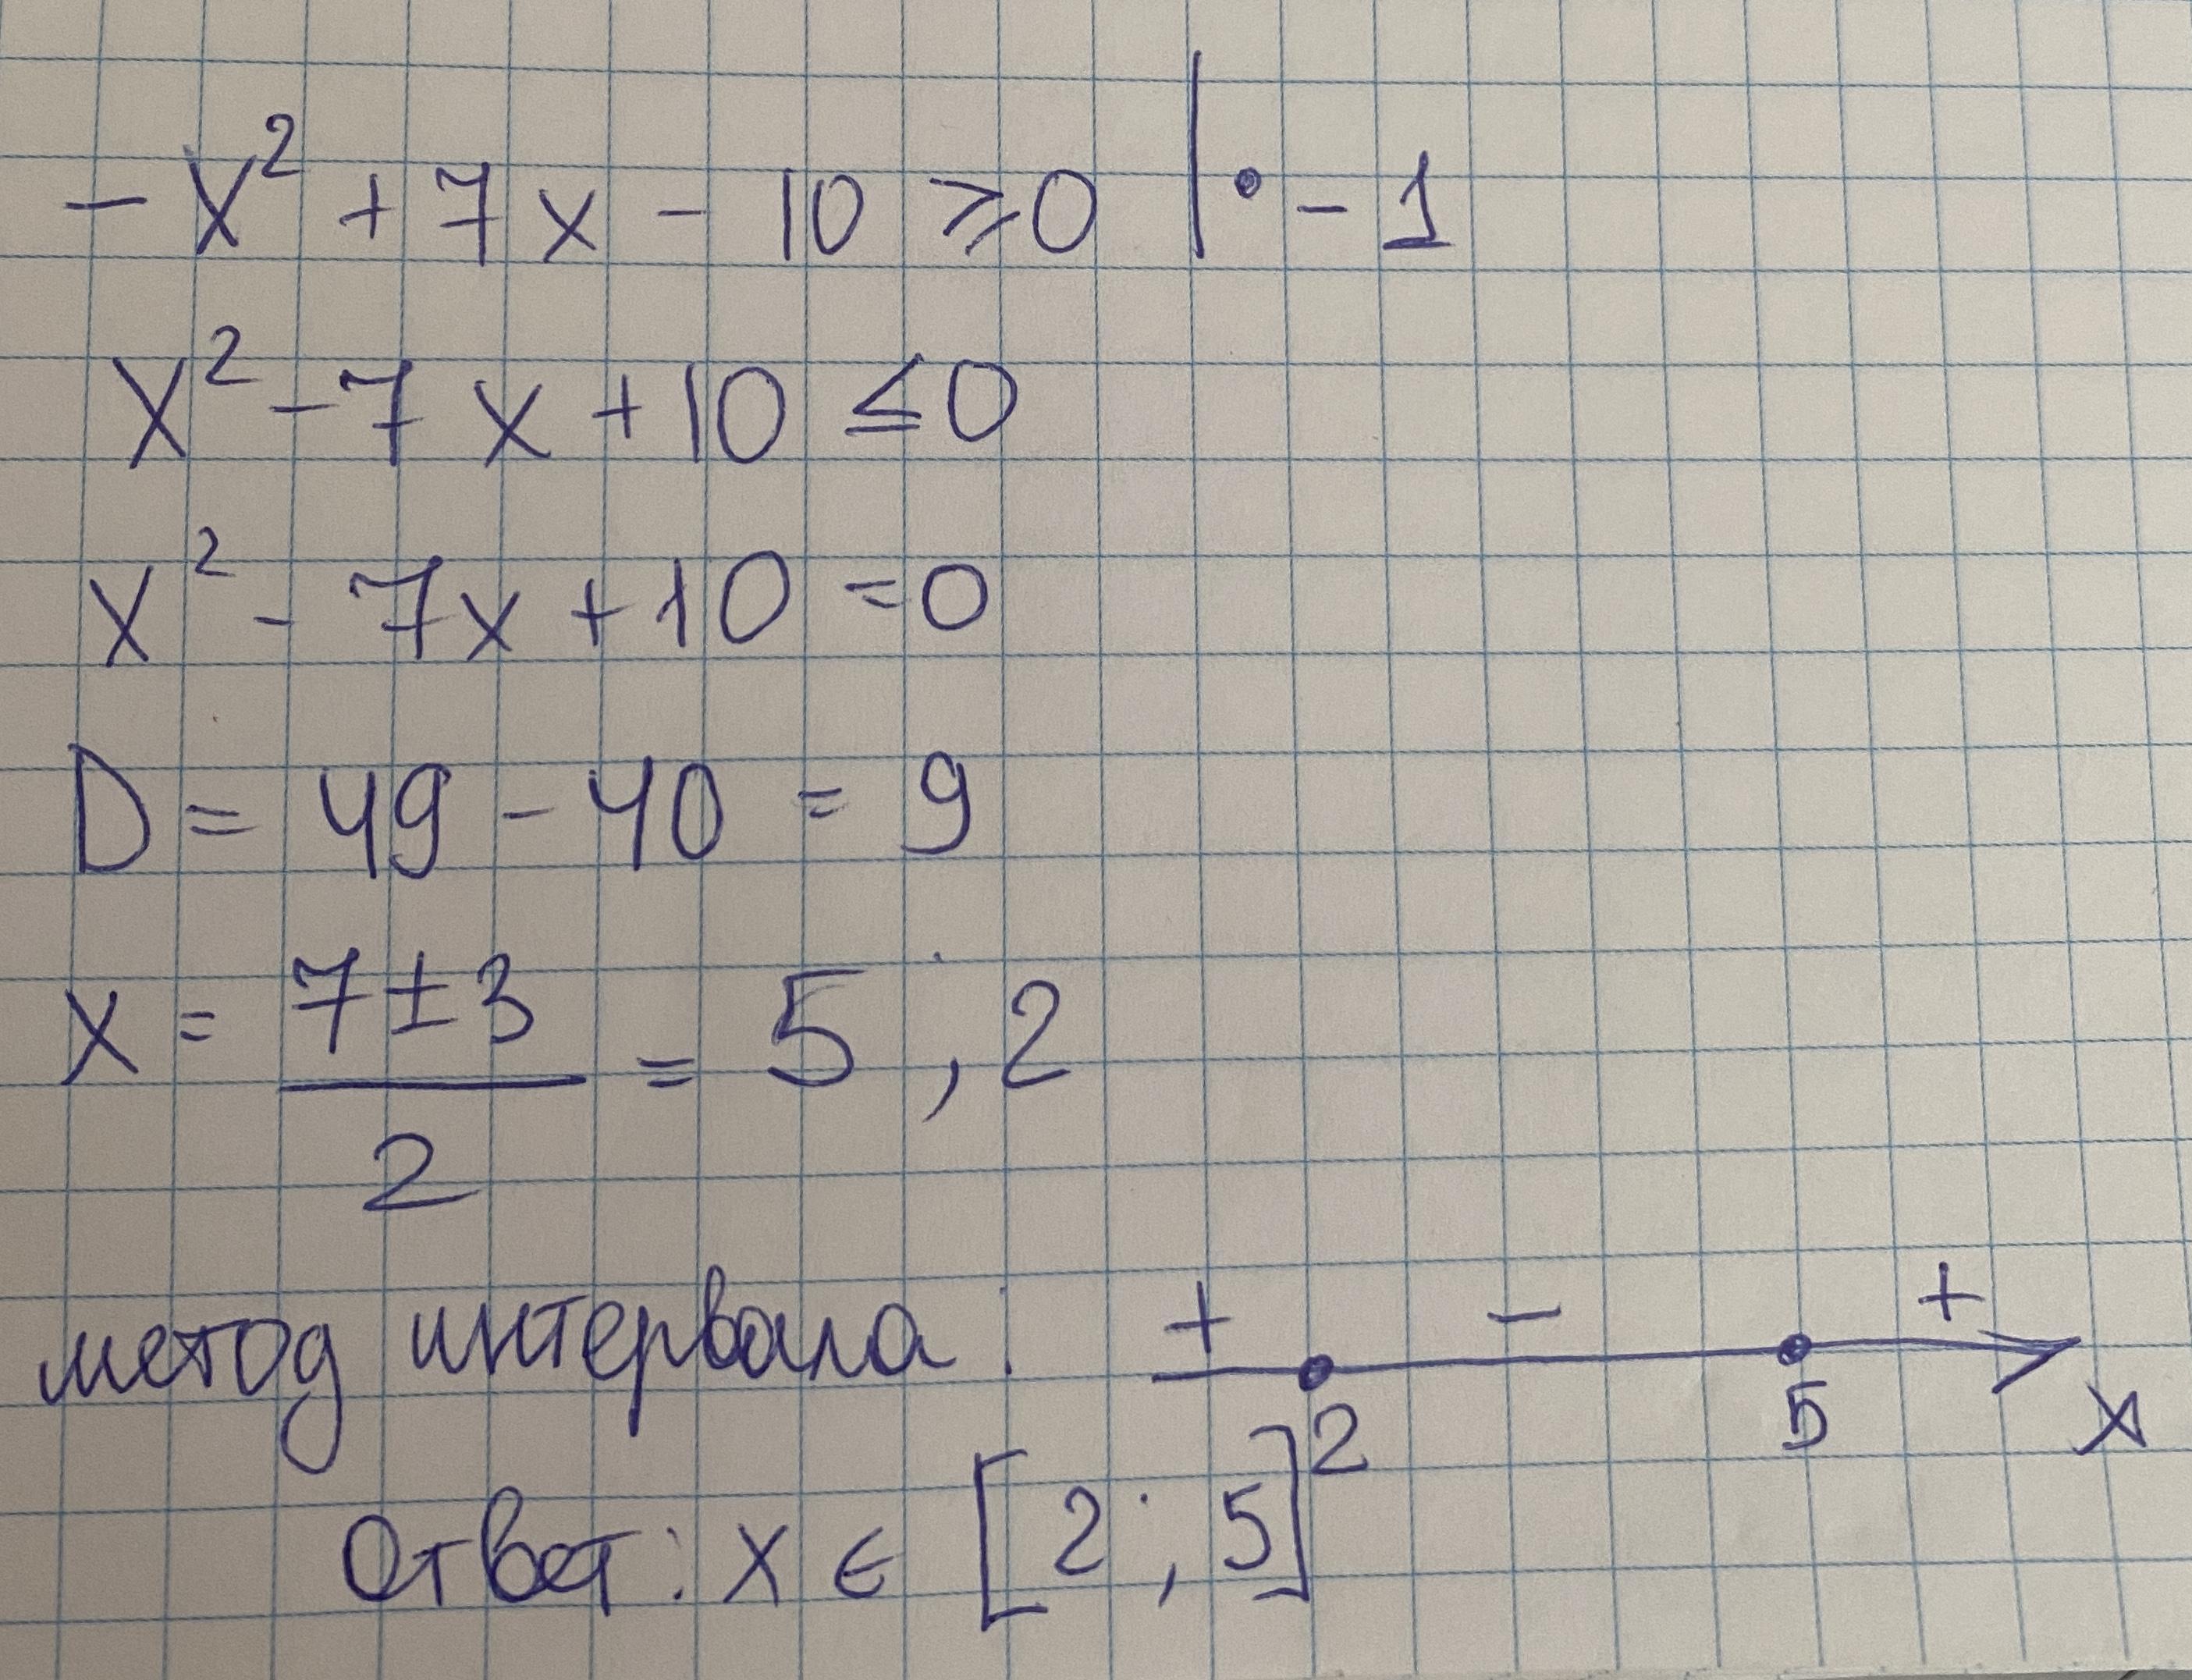 -x² + 7x - 10 ⩾ 0 | • - 1
x² - 7x + 10 ≤ 0
x² - 7x + 10 = 0
D = 49 - 40 = 9
x = (7 ± 3)/2 = 5 ; 2
метод интервала: + - +
2 5 x
Ответ: x ∈ [2 ; 5]